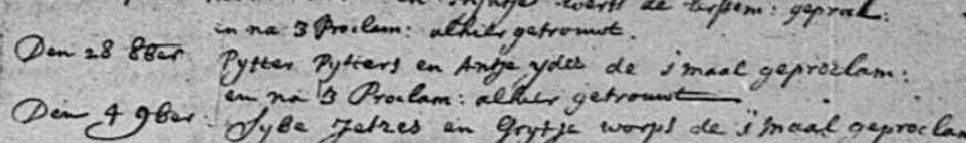 de : geprocl:
en na 3 Proclam: alhier getrouwt.
Den 28 8ber Pytter Pytters en Antje ydes de 1 maal geproclam:
en na 3 Proclam: alhier getrouwt
Den 4 9ber Sybe Jetzes en Grytje worps de 1 maal geproclam